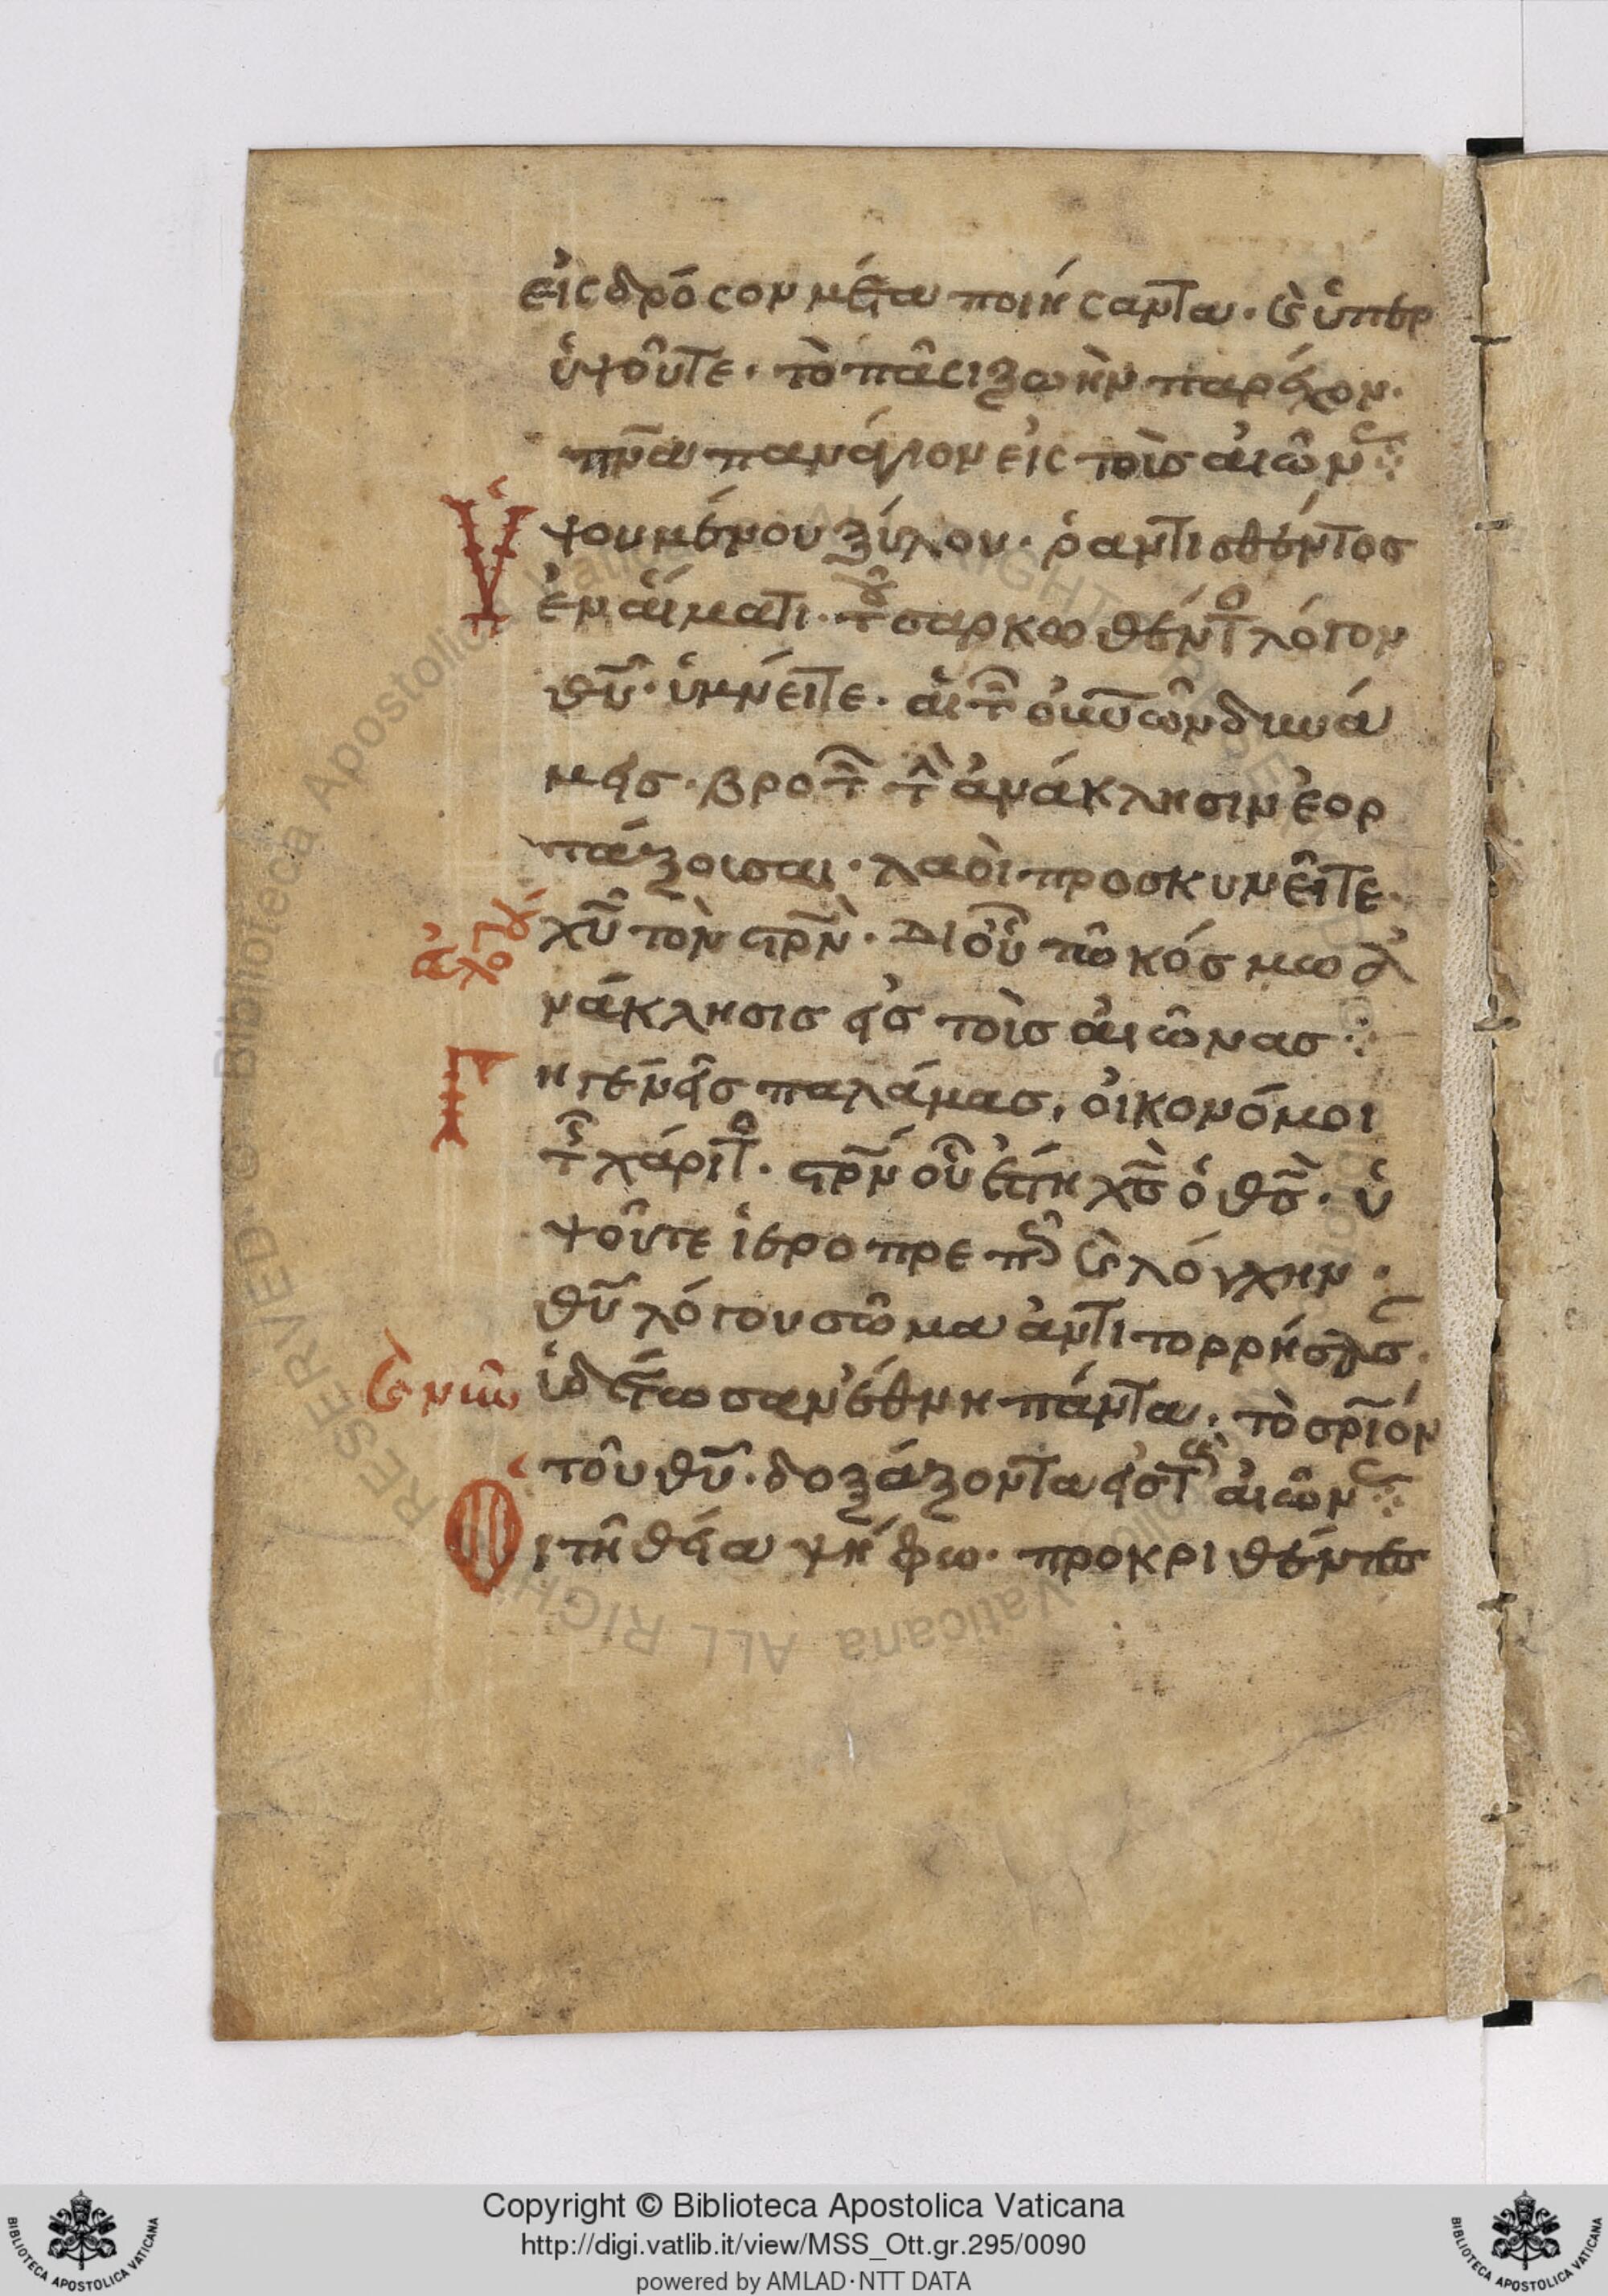 εἰς δρόσον μέτα ποιήσαντα· (καὶ) ὑπερ
ὑψοῦτε· τὸ πᾶσι ζωὴν παρέχον·
πν̅α πανάγιον εἰς τοὺς αἰῶν
Ὑψουμένου ξύλου· ῥαντισθέντος
ἐν αἵματι· τοῦ σαρκωθέντο λόγου
θυ̅· ὑμνεῖτε· αἱ τ οὐνῶν δυνά
μεις· βροτ τὴν ἀνάκλησιν ἑορ
τάζουσαι· λαοὶ προσκυνεῖτε·
χυ̅ τὸν σρ̅ν· Δι οὗ τῶ κόσμω ἀ
νάκλησις εἰς τοὺς αἰῶνας
Γηγενεῖς παλάμαις, οἰκονόμοι
τ χάριτο· σρ̅ν οὗ ἔστη χς̅ ὁ θς̅· ὑ
ψοῦτε ἱεροπρεπῶ (καὶ) λόγχην·
θυ̅ λόγου σῶμα ἀντιτορρήσασ·
ἰδέτωσαν ἔθνη πάντα, τὸ σρ̅ιόν
τοῦ θυ̅· δοξάζοντα εἰς τοὺς αἰῶν
Οἱ τῆ θεία ψήφω· προκριθέντες
Copyright © Biblioteca Apostolica Vaticana
http://digi.vatlib.it/view/MSS_Ott.gr.295/0090
powered by AMLAD·NTT DATA
BIBLIOTECA APOSTOLICA VATICANA
BIBLIOTECA APOSTOLICA VATICANA